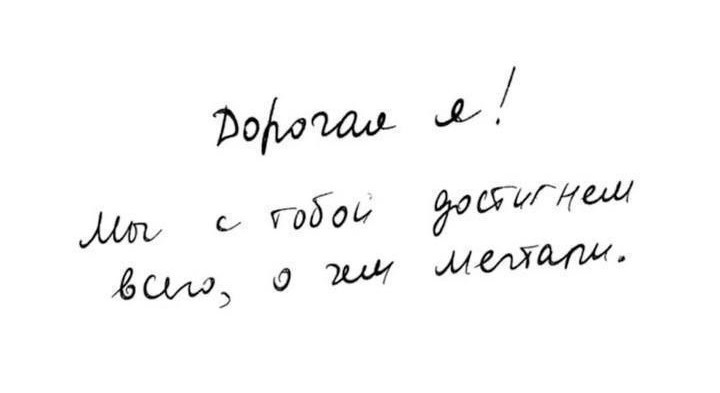 Дорогая я!
Мы с тобой достигнем
всего, о чем мечтали.